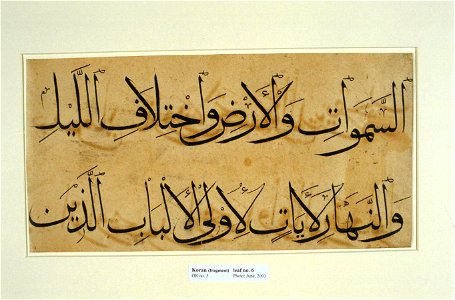 السَّمَوَاتِ وَالْأَرْضِ وَاخْتِلَافِ اللَّيْلِ
وَالنَّهَارِ لَآيَاتٍ لِأُولِي الْأَلْبَابِ الَّذِينَ
Koran (fragment) leaf no. 6
OR no. 3 Photo: June, 2003